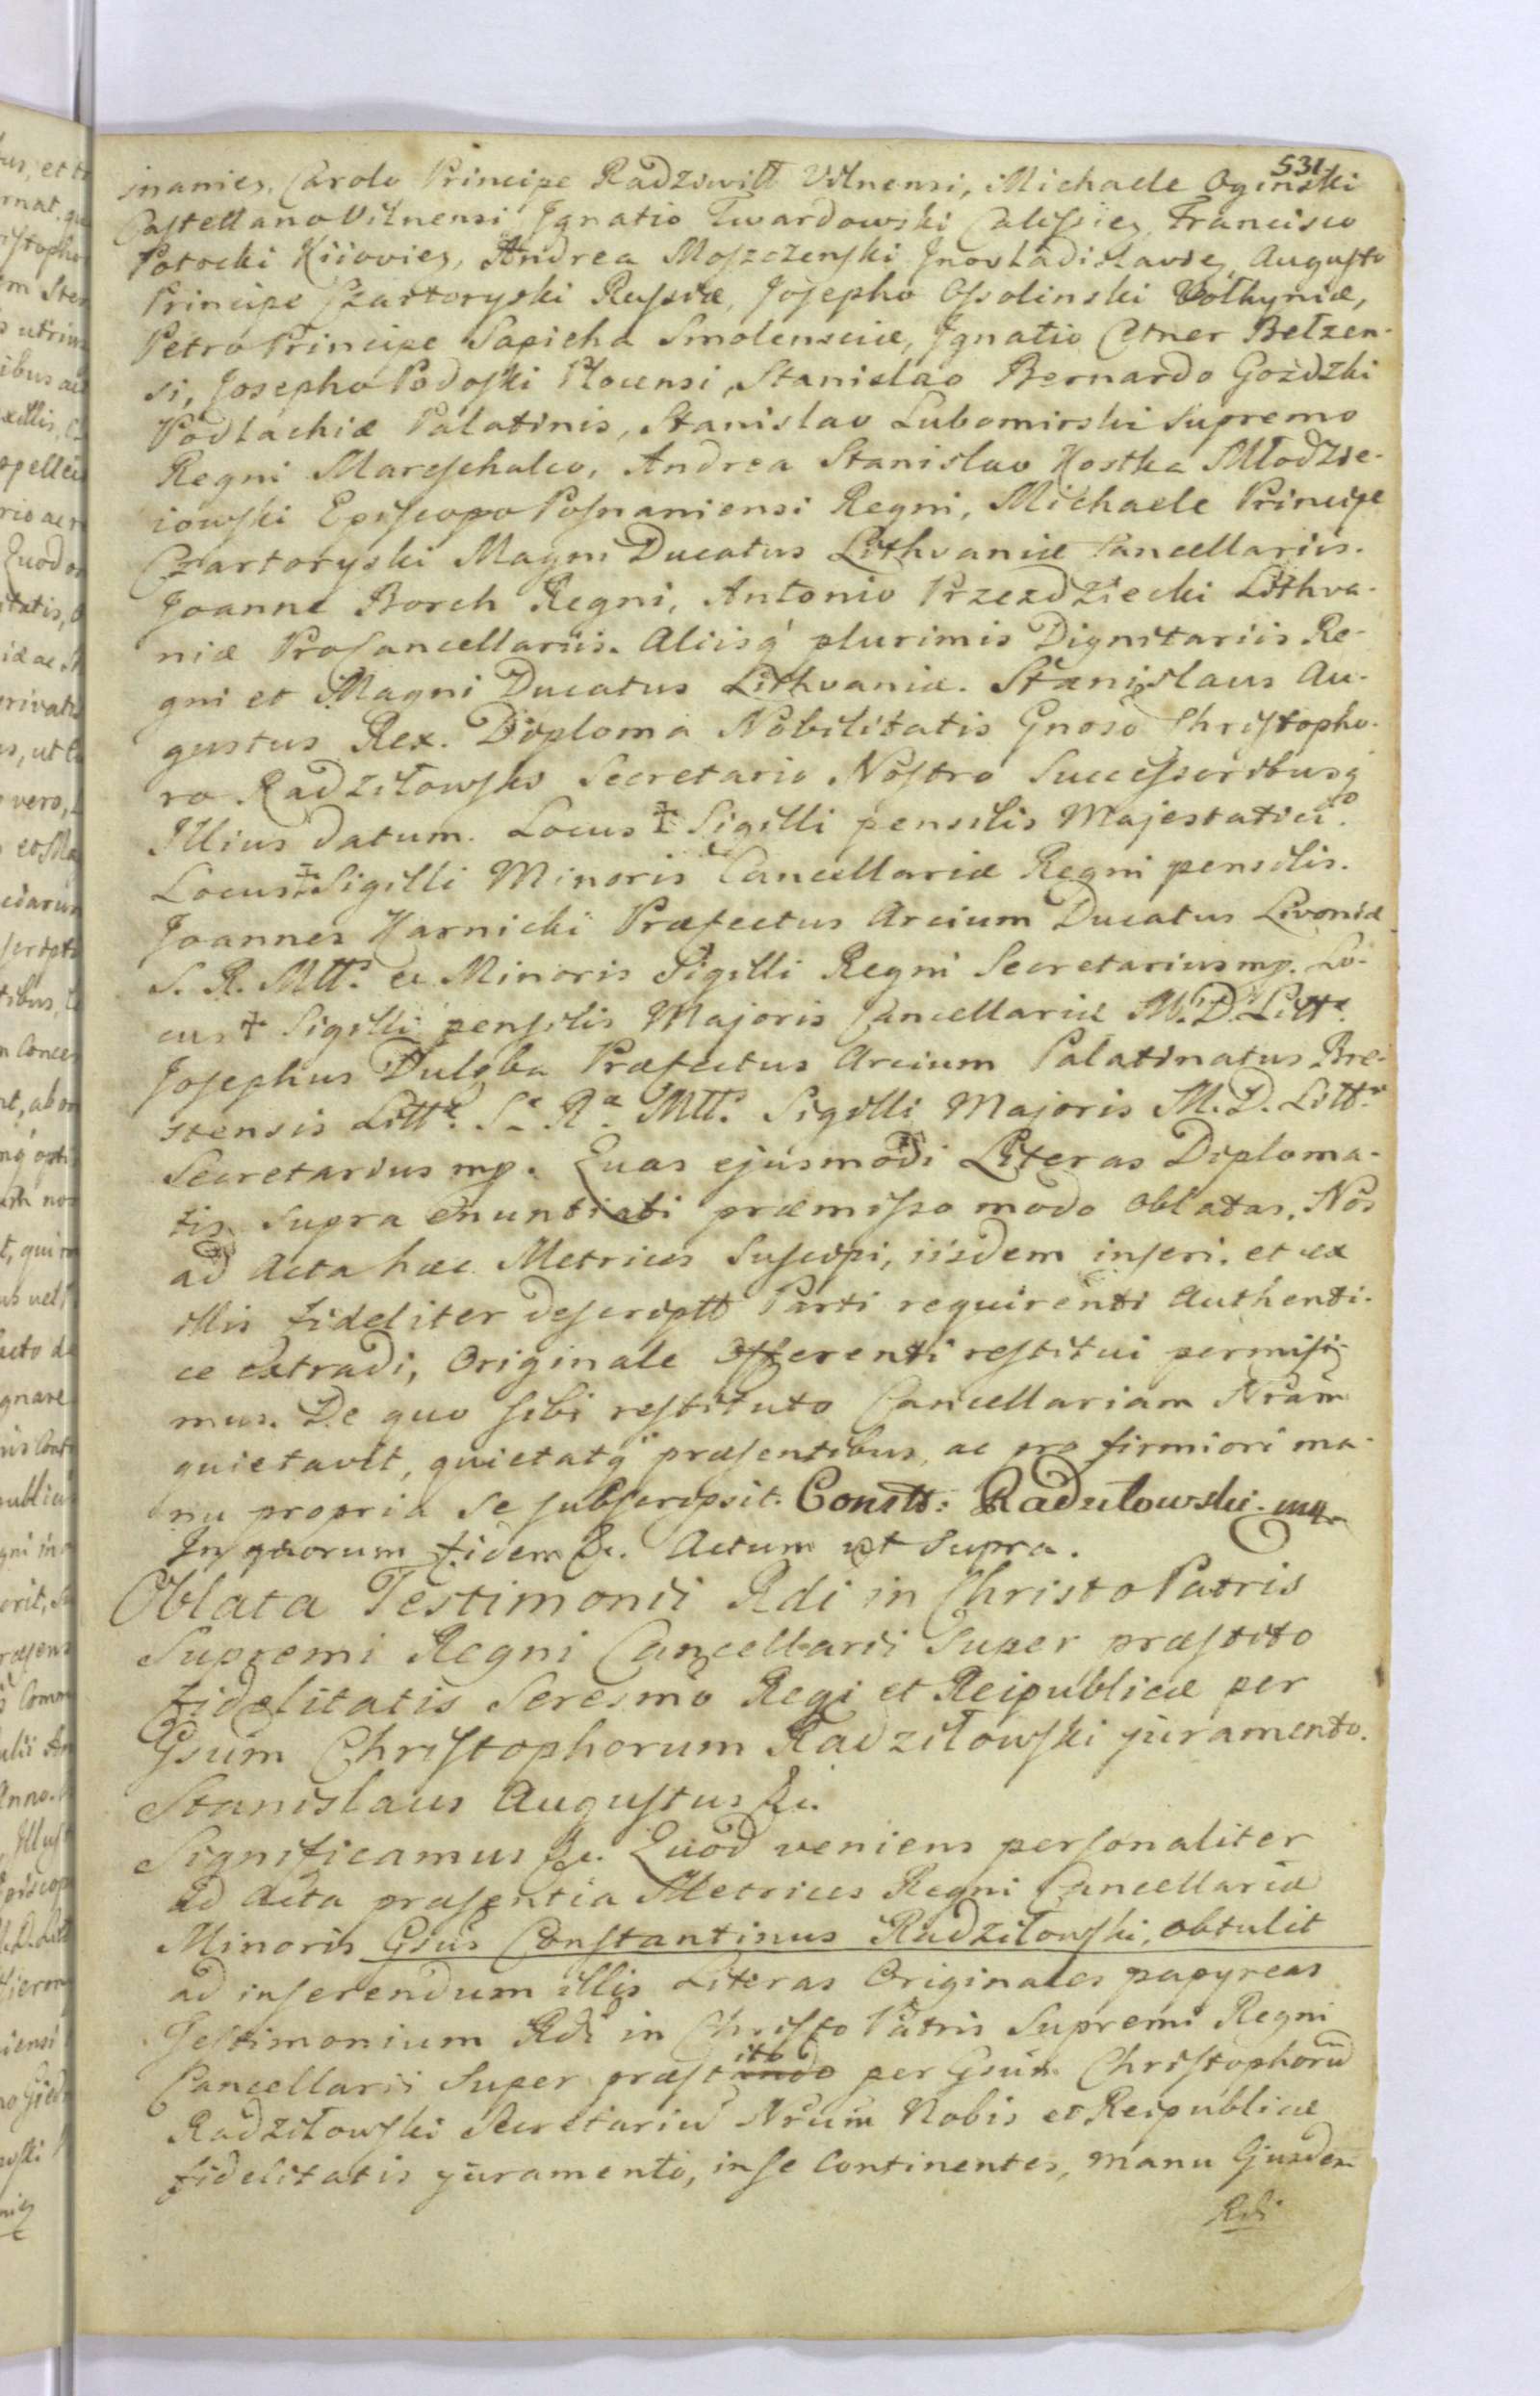 531
inanies. Carolo Principe Radziwitt Vilnensi, Michaele Oginski
Castellano Vilnensi Ignatio Twardowski Calissies, Francisco
Potocki Kiiovies, Andrea Moszczenski Inovladislavies, Augusto
Principe Czartoryski Russiæ, Josepho Ossolinski Wołhyniæ,
Petro Principe Sapieha Smolensciæ, Ignatio Cetner Bełzen-
si, Josepho Podoski Plocensi, Stanislao Bernardo Gozdzki
Podlachiæ Palatinis, Stanislao Lubomirski Supremo
Regni Mareschalco, Andrea Stanislao Kostka Młodzie-
iowski Episcopo Posnaniensi Regni, Michaele Principe
Czartoryski Magni Ducatus Lithvaniæ Cancellariis.
Joanne Borch Regni, Antonio Przezdziecki Lithva-
niæ ProCancellariis. Aliisq́ plurimis Dignitariis Re-
gni et Magni Ducatus Lithvaniæ. Stanislaus Au-
gustus Rex. Diploma Nobilitatis Gnoso Christopho-
ro Radziłowski Secretario Nostro Successoribusq́
Illius datum. Locus ‡ Sigilli pensilis Majestatici.
Locus ‡ Sigilli Minoris Cancellariæ Regni pensilis.
Joannes Karnicki Præfectus Arcium Ducatus Livoniæ
S. R. Mtt. et Minoris Sigilli Regni Secretarius mp. Lo-
cus ‡ Sigilli pensilis Majoris Cancellariæ M. D. Litt.
Josephus Duleba Præfectus Arcium Palatinatus Bre-
stensis Litt. S. R. Mtt. Sigilli Majoris M. D. Litt.
Secretarius mp. Quas ejusmodi Literas Diploma-
tis Supra enuntiati præmisso modo oblatas, Nos
ad Acta hæc Metrices Suscipi, iisdem inseri, et ex
illis fideliter descriptt Parti requirenti Authenti-
ce extradi, Originale Offerenti restitui permisi-
mus. De quo sibi restituto Cancellariam Nram
quietavit, quietatq́ præsentibus, ac pro firmiori ma-
nu propria Se subscripsit. Constt: Radziłowski mp
In quorum fidem &c. Actum ut Supra.
Oblata Testimonii Rdi in Christo Patris
Supremi Regni Cancellarii Super præstito
fidelitatis Seresmo Regi et Reipublicæ per
Gsum Christophorum Radziłowski juramento.
Stanislaus Augustus &c.
Significamus &c. Quod veniens personaliter
ad Acta præsentia Metrices Regni Cancellariæ
Minoris Gsus Constantinus Radziłowski, obtulit
ad inserendum illis Literas Originales papyreas
Testimonium Rdi in Christo Patris Supremi Regni
Cancellarii Super præstando ito per Gsum Christophorū
Radziłowski Secretariū Nrum Nobis et Reipublicæ
fidelitatis juramento, in se Continentes, manu Ejusdem
Rdi